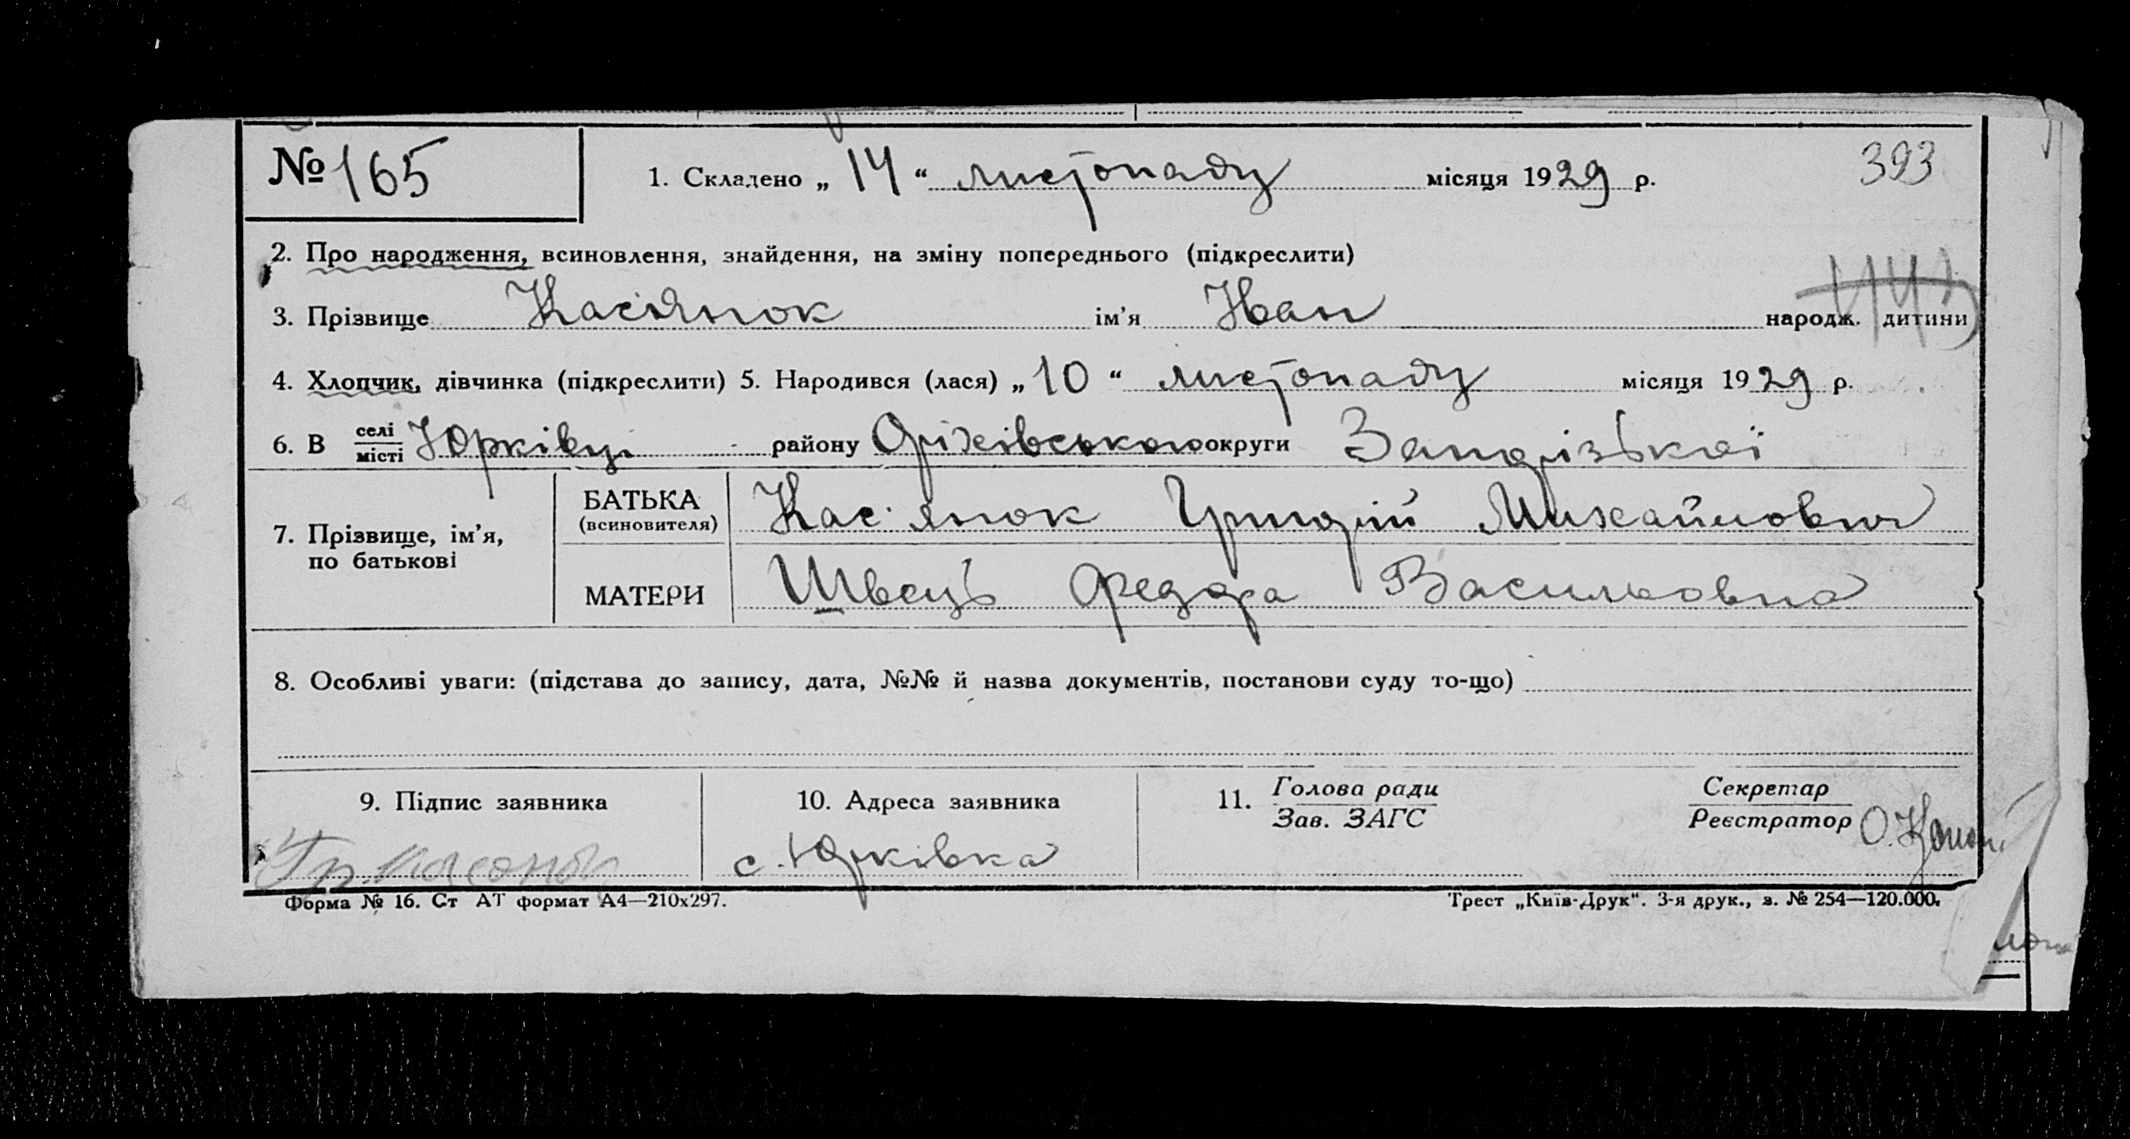 № 165 1. Складено „14“ листопаду місяця 1929 р. 393
2. Про народження, всиновлення, знайдення, на зміну попереднього (підкреслити)
3. Прізвище Касянок ім’я Іван народж. дитини
4. Хлопчик, дівчинка (підкреслити) 5. Народився (лася) „10“ листопаду місяця 1929 р.
6. В селі/місті Юрківці району Оріхівського округи Запорізької
7. Прізвище, ім’я, по батькові
БАТЬКА (всиновителя) Кас'янок Григорій Михайлович
МАТЕРИ Швець Федора Васильовна
8. Особливі уваги: (підстава до запису, дата, №№ й назва документів, постанови суду то-що)
9. Підпис заявника 10. Адреса заявника 11. Голова ради Секретар
Зав. ЗАГС Реєстратор
с. Юрківка
Форма № 16. Ст АТ формат А4—210х297. Трест „Київ-Друк“. 3-я друк., з. № 254—120.000.